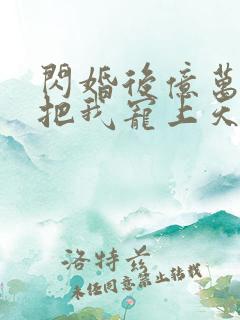 閃婚後億萬
把我寵上天
洛特茲
未經同意禁止轉載